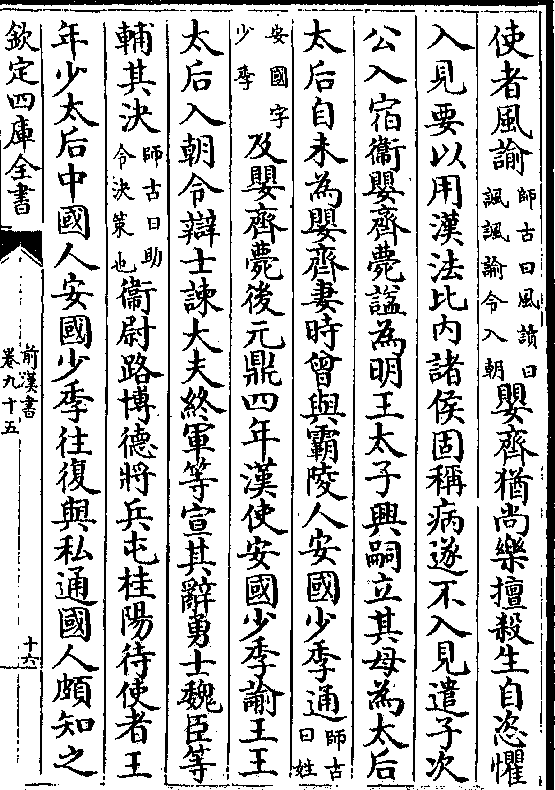 使者風諭師古曰風讀曰諷諷諭令入朝嬰齊猶尚樂擅殺生自恣懼
入見要以用漢法比内諸侯固稱病遂不入見遣子次
公入宿衞嬰齊薨諡為明王太子興嗣立其母為太后
太后自未為嬰齊妻時曾與霸陵人安國少季通師古曰姓
安國字少季及嬰齊薨後元鼎四年漢使安國少季諭王王
太后入朝令辯士諫大夫終軍等宣其辭勇士魏臣等
輔其決師古曰助令決策也衞尉路博德將兵屯桂陽待使者王
年少太后中國人安國少季往復與私通國人頗知之
欽定四庫全書
前漢書
卷九十五
十六